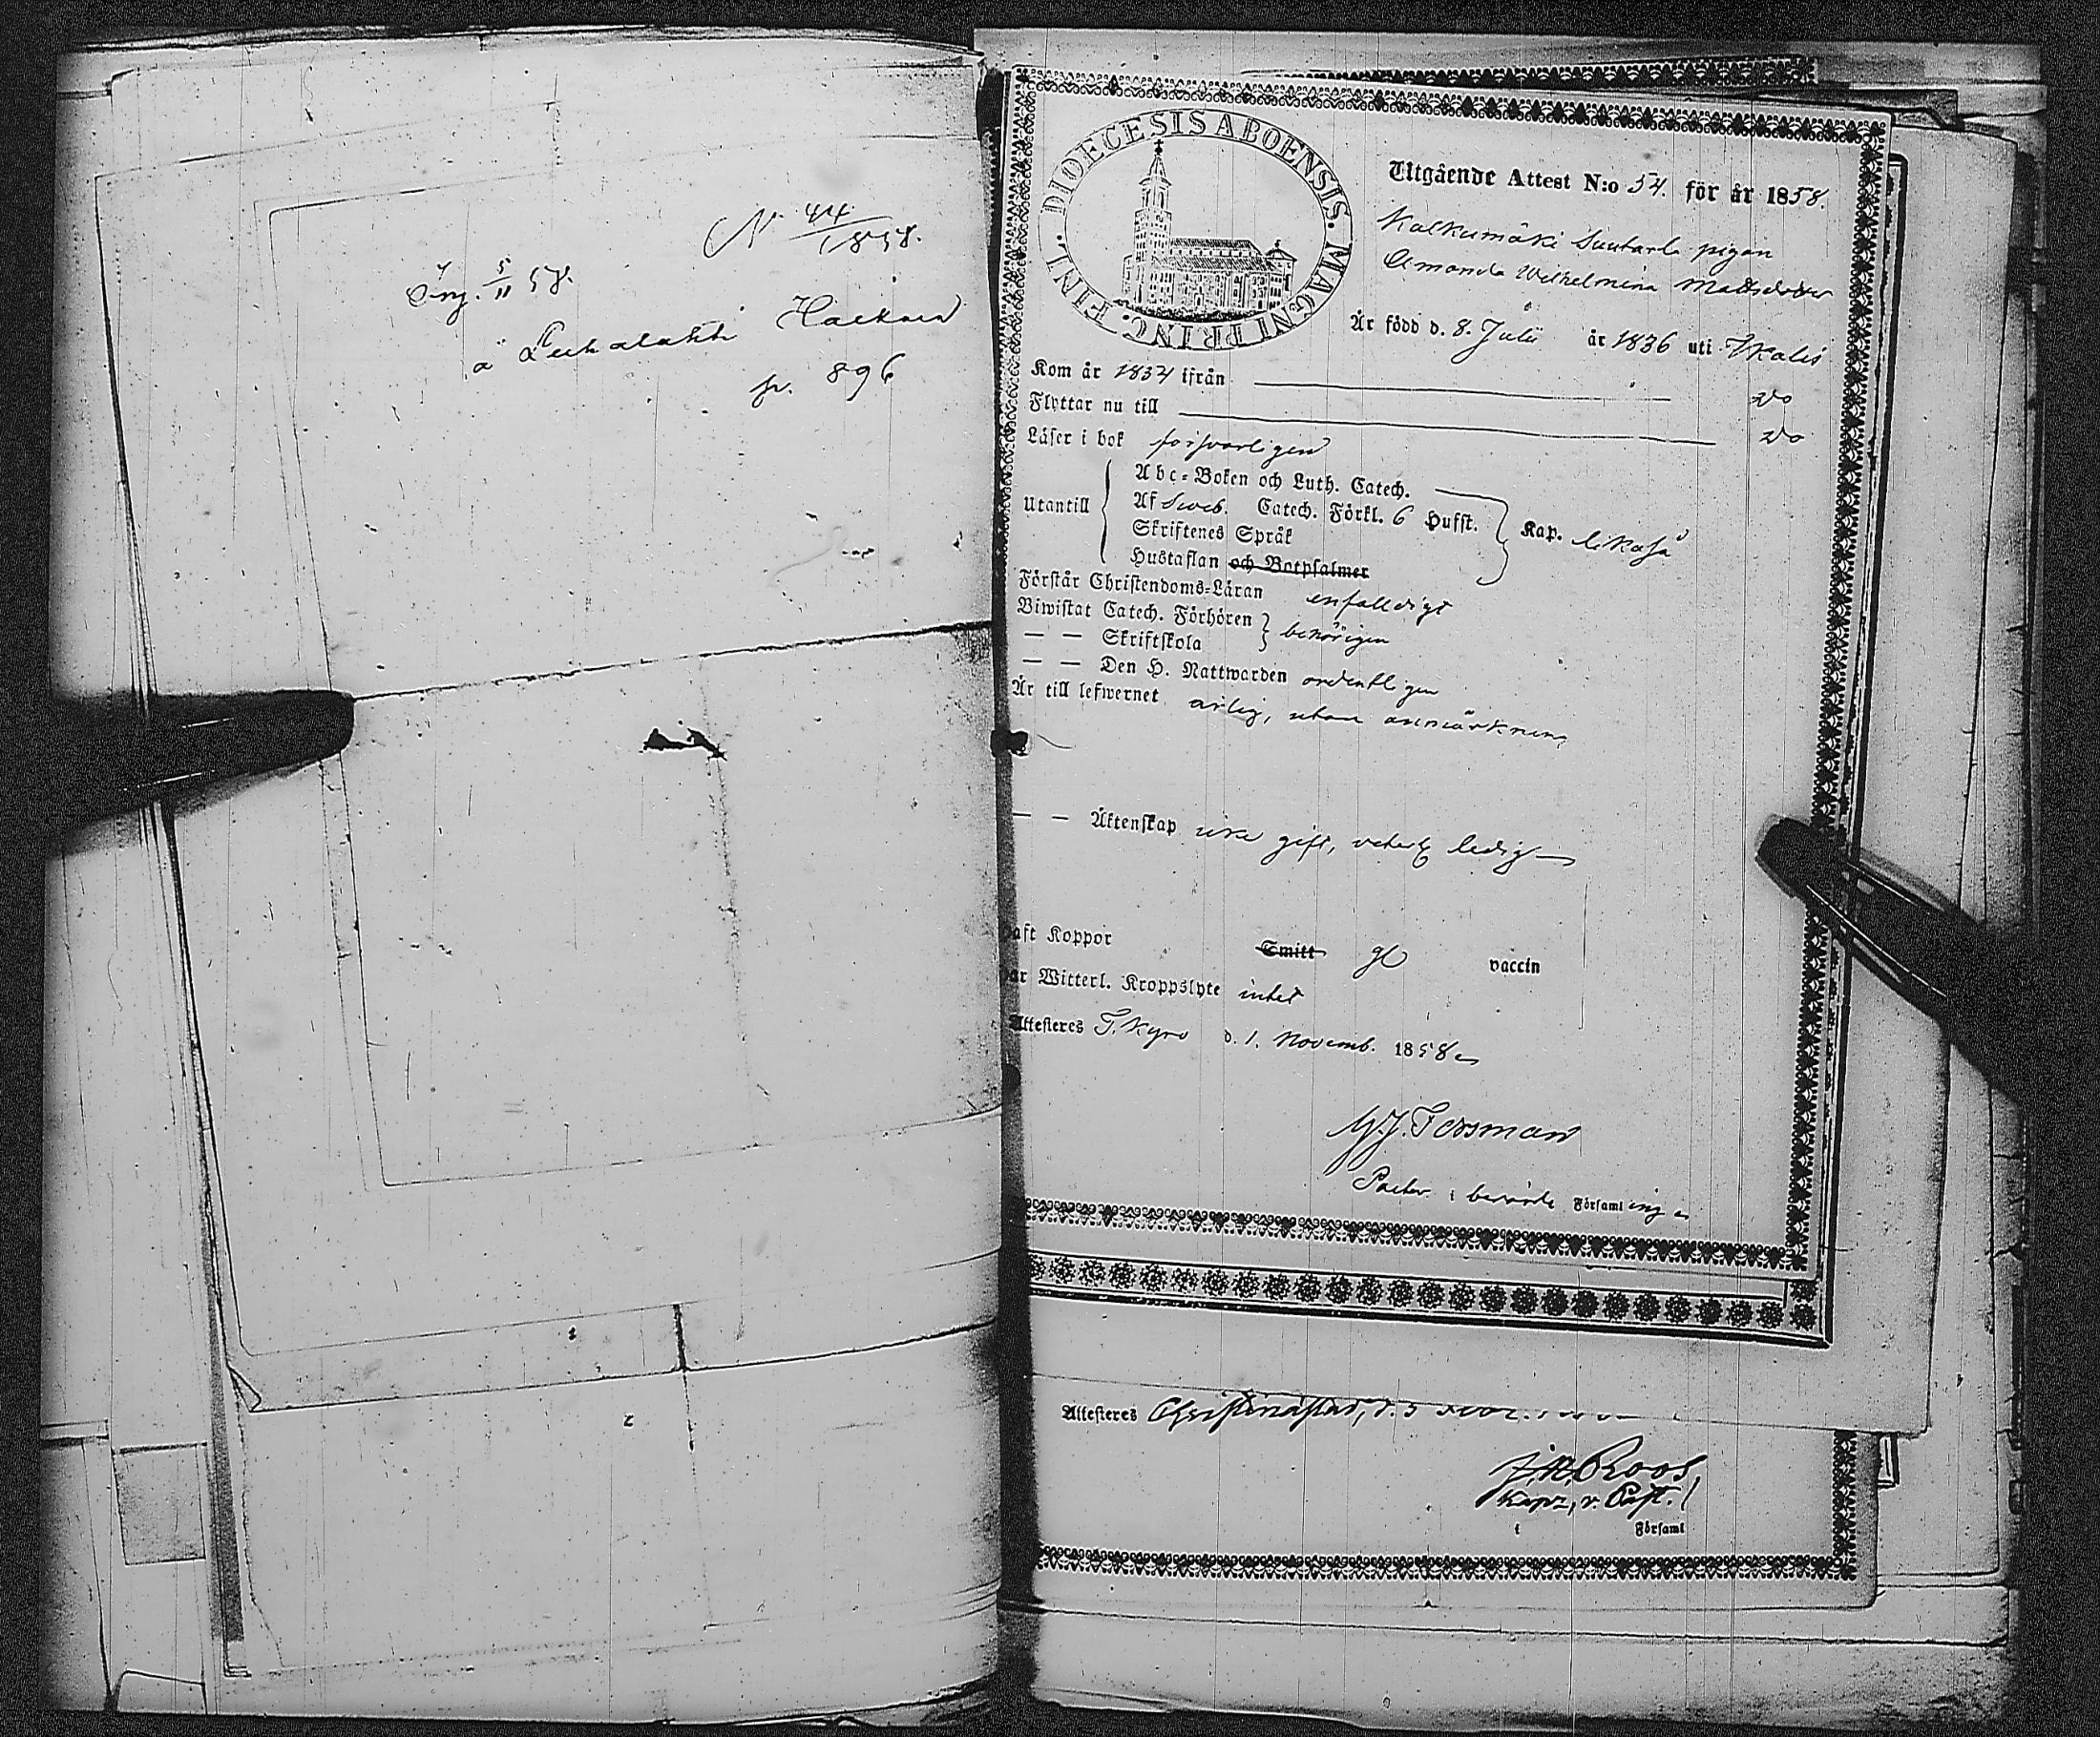 N. 44/1858.
Ing. 5/11 58.
å Hackard
p. 896
DIOECESIS ABOENSIS. MAGNI PRINC. FINL.
Utgående Attest N:o 54. för år 1858.
Kalkumäki Suutarla pigan
Amanda Wilhelmina Mattsdotter
Är född d. 8. Julii år 1836 uti Ikalis
Kom år 1837 ifrån do
Flyttar nu till do
Läser i bok försvarligen
Utantill
Abc-Boken och Luth. Catech.
Af Sveb. Catech. Förkl. 6 Hufst.
Skriftenes Språk
Hustaflan och Botpsalmer
Kap. likaså
Förstår Christendoms-Läran enfalldigt
Biwistat Catech. Förhören
— — Skriftskola
behörigen
— — Den H. Nattwarden ordentligen
Är till lefwernet ärlig, utan anmärkning
— — Äktenskap icke gift, veterl. ledig
aft Koppor Smitt gl vaccin
ar Witterl. Kroppslyte intet
Attesteres T. Kyro d. 1. Novemb. 1858
G. J. Forsman
Pastor i berörde Församling
Attesteres Christinestad, d. 3
J. N. Roos
Kapl., v. Past.
i Församl